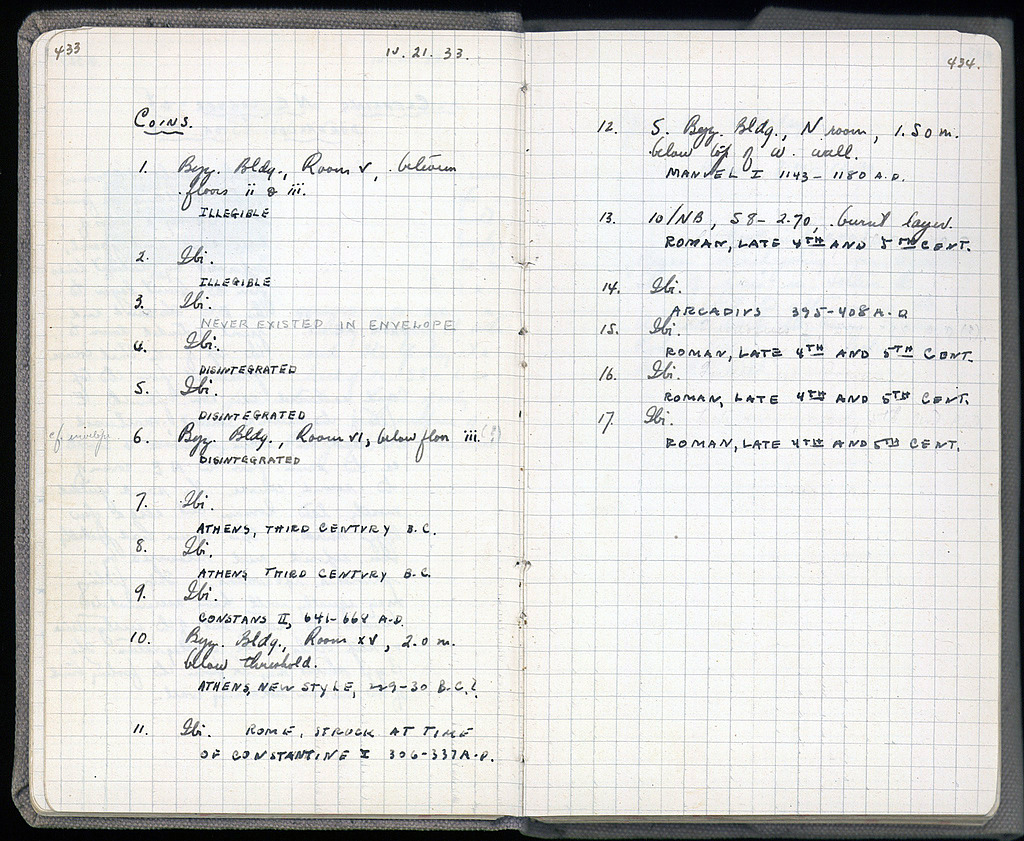 433
IV. 21. 33.
COINS.
1. Byz. Bldg., Room V, between
floors ii & iii.
ILLEGIBLE
2. Ibi.
ILLEGIBLE
3. Ibi.
NEVER EXISTED IN ENVELOPE
4. Ibi.
DISINTEGRATED
5. Ibi.
DISINTEGRATED
cf. envelope. 6. Byz. Bldg., Room VI, below floor iii. (?)
DISINTEGRATED
7. Ibi.
ATHENS, THIRD CENTURY B.C.
8. Ibi.
ATHENS, THIRD CENTURY B.C.
9. Ibi.
CONSTANS II, 641-668 A.D.
10. Byz. Bldg., Room XV, 2.0 m.
below threshold.
ATHENS, NEW STYLE, 229-30 B.C.?
11. Ibi. ROME, STRUCK AT TIME
OF CONSTANTINE I 306-337 A.D.
434.
12. S. Byz. Bldg., N room, 1.50 m.
below top of W. wall.
MANUEL I 1143-1180 A.D.
13. 10/NB, 58-2.70, burnt layer.
ROMAN, LATE 4TH AND 5TH CENT.
14. Ibi.
ARCADIUS 395-408 A.D
15. Ibi.
ROMAN, LATE 4TH AND 5TH CENT.
16. Ibi.
ROMAN, LATE 4TH AND 5TH CENT.
17. Ibi.
ROMAN, LATE 4TH AND 5TH CENT.